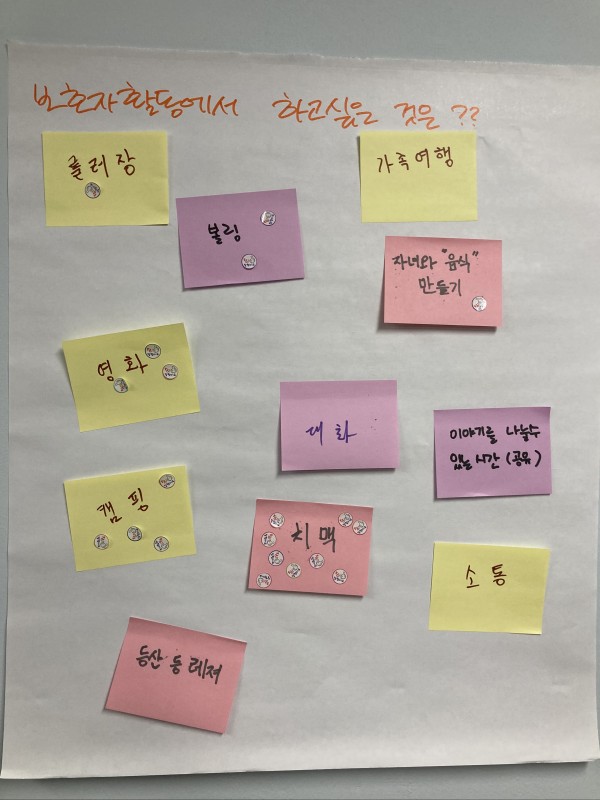 보호자활동에서 하고싶은 것은 ??
풀러장
가족여행
볼링
자녀와 "음식"
만들기
영화
대화
이야기를 나눌수
있는 시간 (공유)
캠핑
치맥
소통
등산 등 레져